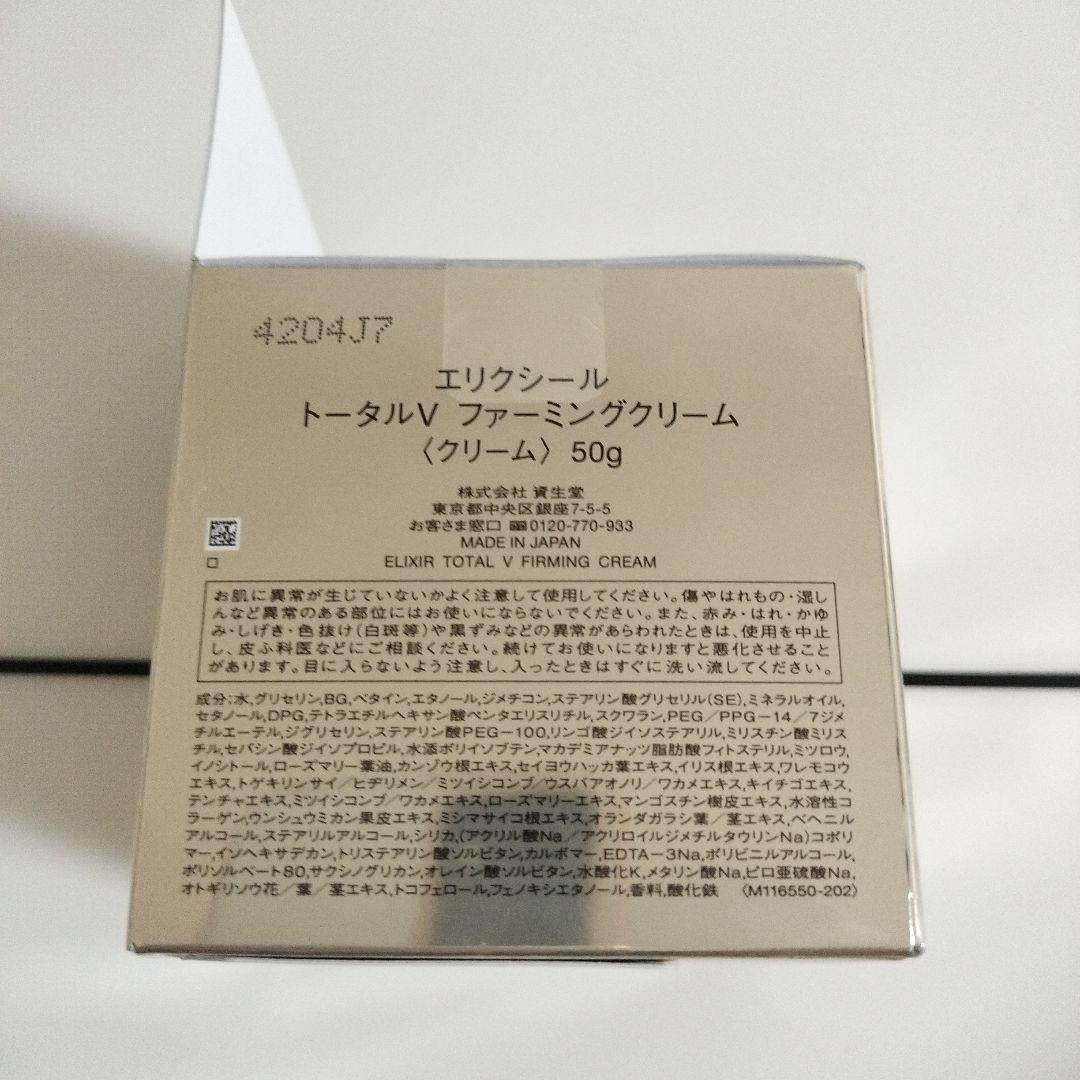 4204J7
エリクシール
トータルV ファーミングクリーム
〈クリーム〉 50g
株式会社 資生堂
東京都中央区銀座7-5-5
お客さま窓口 0120-770-933
MADE IN JAPAN
ELIXIR TOTAL V FIRMING CREAM
お肌に異常が生じていないかよく注意して使用してください。傷やはれもの・湿し
んなど異常のある部位にはお使いにならないでください。また、赤み・はれ・かゆ
み・しげき・色抜け(白斑等)や黒ずみなどの異常があらわれたときは、使用を中止
し、皮ふ科医などにご相談ください。続けてお使いになりますと悪化させること
があります。目に入らないよう注意し、入ったときはすぐに洗い流してください。
成分:水,グリセリン,BG,ベタイン,エタノール,ジメチコン,ステアリン酸グリセリル(SE),ミネラルオイル,
セタノール,DPG,テトラエチルヘキサン酸ペンタエリスリチル,スクワラン,PEG/PPG-14/7ジメ
チルエーテル,ジグリセリン,ステアリン酸PEG-100,リンゴ酸ジイソステアリル,ミリスチン酸ミリス
チル,セバシン酸ジイソプロピル,水添ポリイソブテン,マカデミアナッツ脂肪酸フィトステリル,ミツロウ,
イノシトール,ローズマリー葉油,カンゾウ根エキス,セイヨウハッカ葉エキス,イリス根エキス,ワレモコウ
エキス,トゲキリンサイ/ヒヂリメン/ミツイシコンブ/ウスバアオノリ/ワカメエキス,キイチゴエキス,
テンチャエキス,ミツイシコンブ/ワカメエキス,ローズマリーエキス,マンゴスチン樹皮エキス,水溶性コ
ラーゲン,ウンシュウミカン果皮エキス,ミシマサイコ根エキス,オランダガラシ葉/茎エキス,ベヘニル
アルコール,ステアリルアルコール,シリカ,(アクリル酸Na/アクリロイルジメチルタウリンNa)コポリ
マー,イソヘキサデカン,トリステアリン酸ソルビタン,カルボマー,EDTA-3Na,ポリビニルアルコール,
ポリソルベート80,サクシノグリカン,オレイン酸ソルビタン,水酸化K,メタリン酸Na,ピロ亜硫酸Na,
オトギリソウ花/葉/茎エキス,トコフェロール,フェノキシエタノール,香料,酸化鉄 〈M116550-202〉